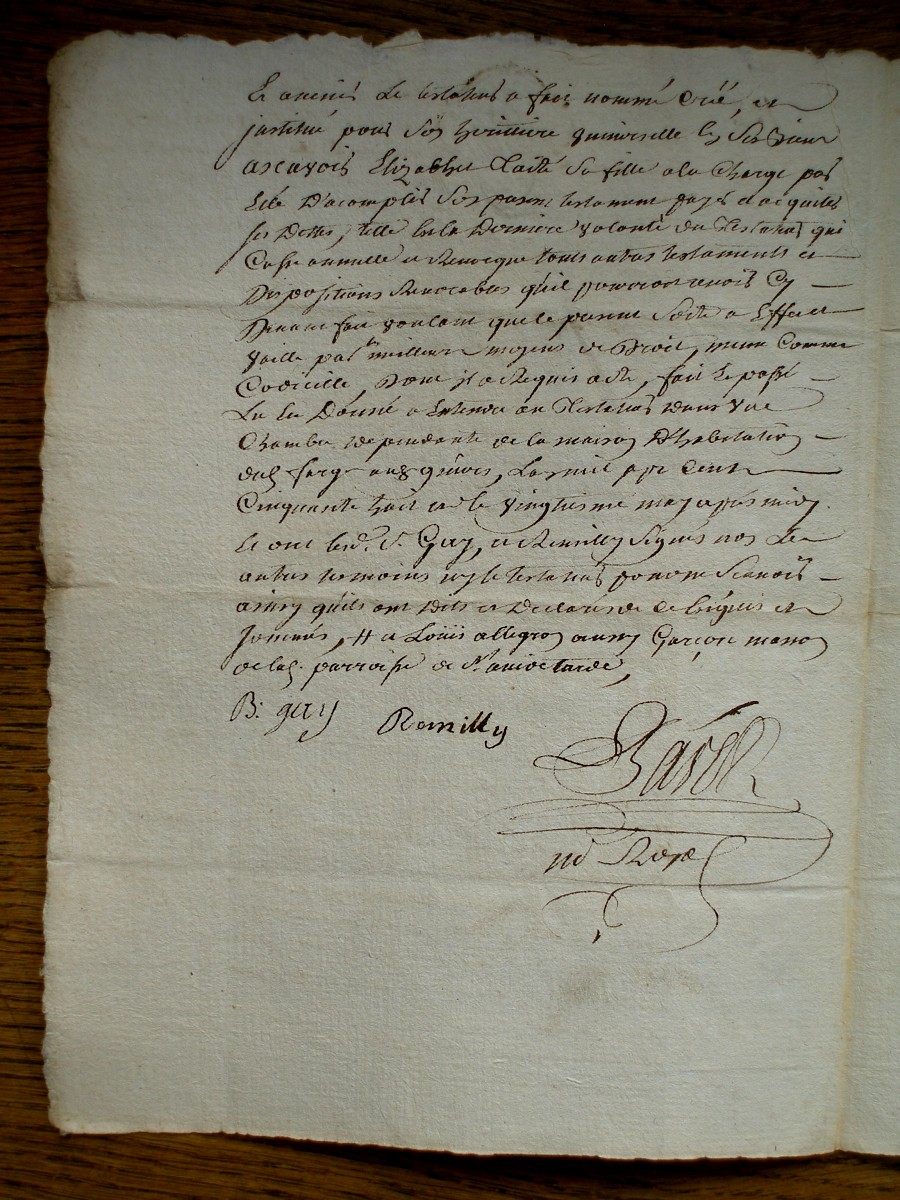 Et le testateur a fait nommé créé, et
institué pour son héritiere universelle les ses biens
ascavoir Elizabhet sa fille a la Charge par
Elle D'acomplir son present testament payer et acquiter
ses Dettes, telle est la Derniere volonté du Testateur qui
Casse annulle et Revoque touts autres testaments et
Dispositions Revocables qu'il pourroit avoir Cy
Devant fait voulant que le present Sorte a Effet et
vaille par les meilleurs moyens de Droit, meme Comme
Codicille, Dont il a Requis acte, fait Le passé
Lu Et Donné a Entendre au Testateur dans une
Chambre dependante de la maison D'habitation
L'an mil sept Cent
Cinquante huit et le vingtieme may apres midy
Et ont led. S. Gery, et Remilly Signés non Les
autres temoins ny le testateur pour ne Scavoir
ainsy qu'ils ont Dits et Declarés de Ce Requis et
Sommés, # et Louis allegros aussy Garçon maçon
de lad. parroisse de
B: gery
Remilly
nore Royal